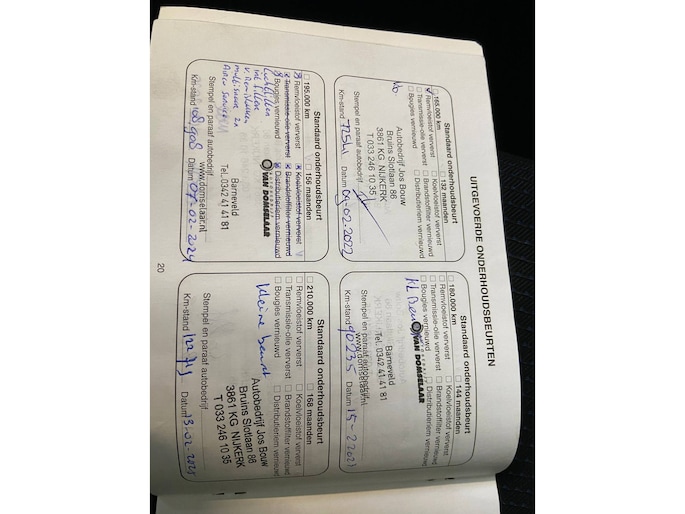 UITGEVOERDE ONDERHOUDSBEURTEN
Standaard onderhoudsbeurt
165.000 km
132 maanden
Remvloeistof ververst
Koelvloeistof ververst
Transmissie-olie ververst
Brandstoffilter vernieuwd
Bougies vernieuwd
Distributieriem vernieuwd
Autobedrijf Jos Bouw
Bruins Slotlaan 88
3861 KG NIJKERK
T 033 246 10 35
Stempel en paraaf autobedrijf
Km-stand
Datum 09-02-2022
Standaard onderhoudsbeurt
180.000 km
144 maanden
Remvloeistof ververst
Koelvloeistof ververst
Transmissie-olie ververst
Brandstoffilter vernieuwd
Bougies vernieuwd
Distributieriem vernieuwd
VAN DOMSELAAR
Barneveld
Tel. 0342 41 41 81
www.domselaar.nl
Km-stand 90235
Datum 15-2-2023
Standaard onderhoudsbeurt
195.000 km
156 maanden
Remvloeistof ververst
Koelvloeistof ververst
Transmissie-olie ververst
Brandstoffilter vernieuwd
Bougies vernieuwd
Distributieriem vernieuwd
VAN DOMSELAAR
Barneveld
Tel. 0342 41 41 81
www.domselaar.nl
Stempel en paraaf autobedrijf
Km-stand 108.908
Datum 07-02-2024
Standaard onderhoudsbeurt
210.000 km
168 maanden
Remvloeistof ververst
Koelvloeistof ververst
Transmissie-olie ververst
Brandstoffilter vernieuwd
Bougies vernieuwd
Distributieriem vernieuwd
Kleine beurt
Autobedrijf Jos Bouw
Bruins Slotlaan 88
3861 KG NIJKERK
T 033 246 10 35
Stempel en paraaf autobedrijf
Km-stand
Datum 13-02-2025
20